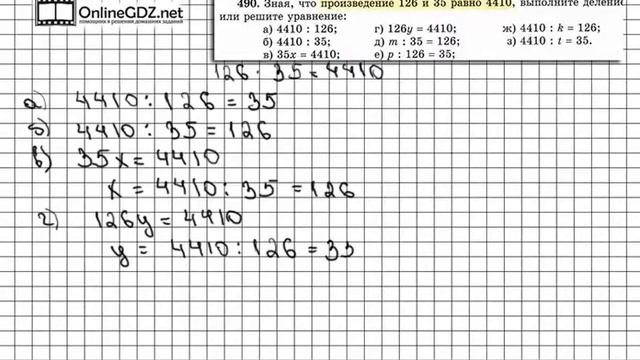 OnlineGDZ.net
помощник в решении домашних заданий
490. Зная, что произведение 126 и 35 равно 4410, выполните деление
или решите уравнение:
а) 4410 : 126; г) 126y = 4410; ж) 4410 : k = 126;
б) 4410 : 35; д) m : 35 = 126; з) 4410 : t = 35.
в) 35x = 4410; е) p : 126 = 35;
126 · 35 = 4410
а) 4410 : 126 = 35
б) 4410 : 35 = 126
в) 35x = 4410
x = 4410 : 35 = 126
г) 126y = 4410
y = 4410 : 126 = 35